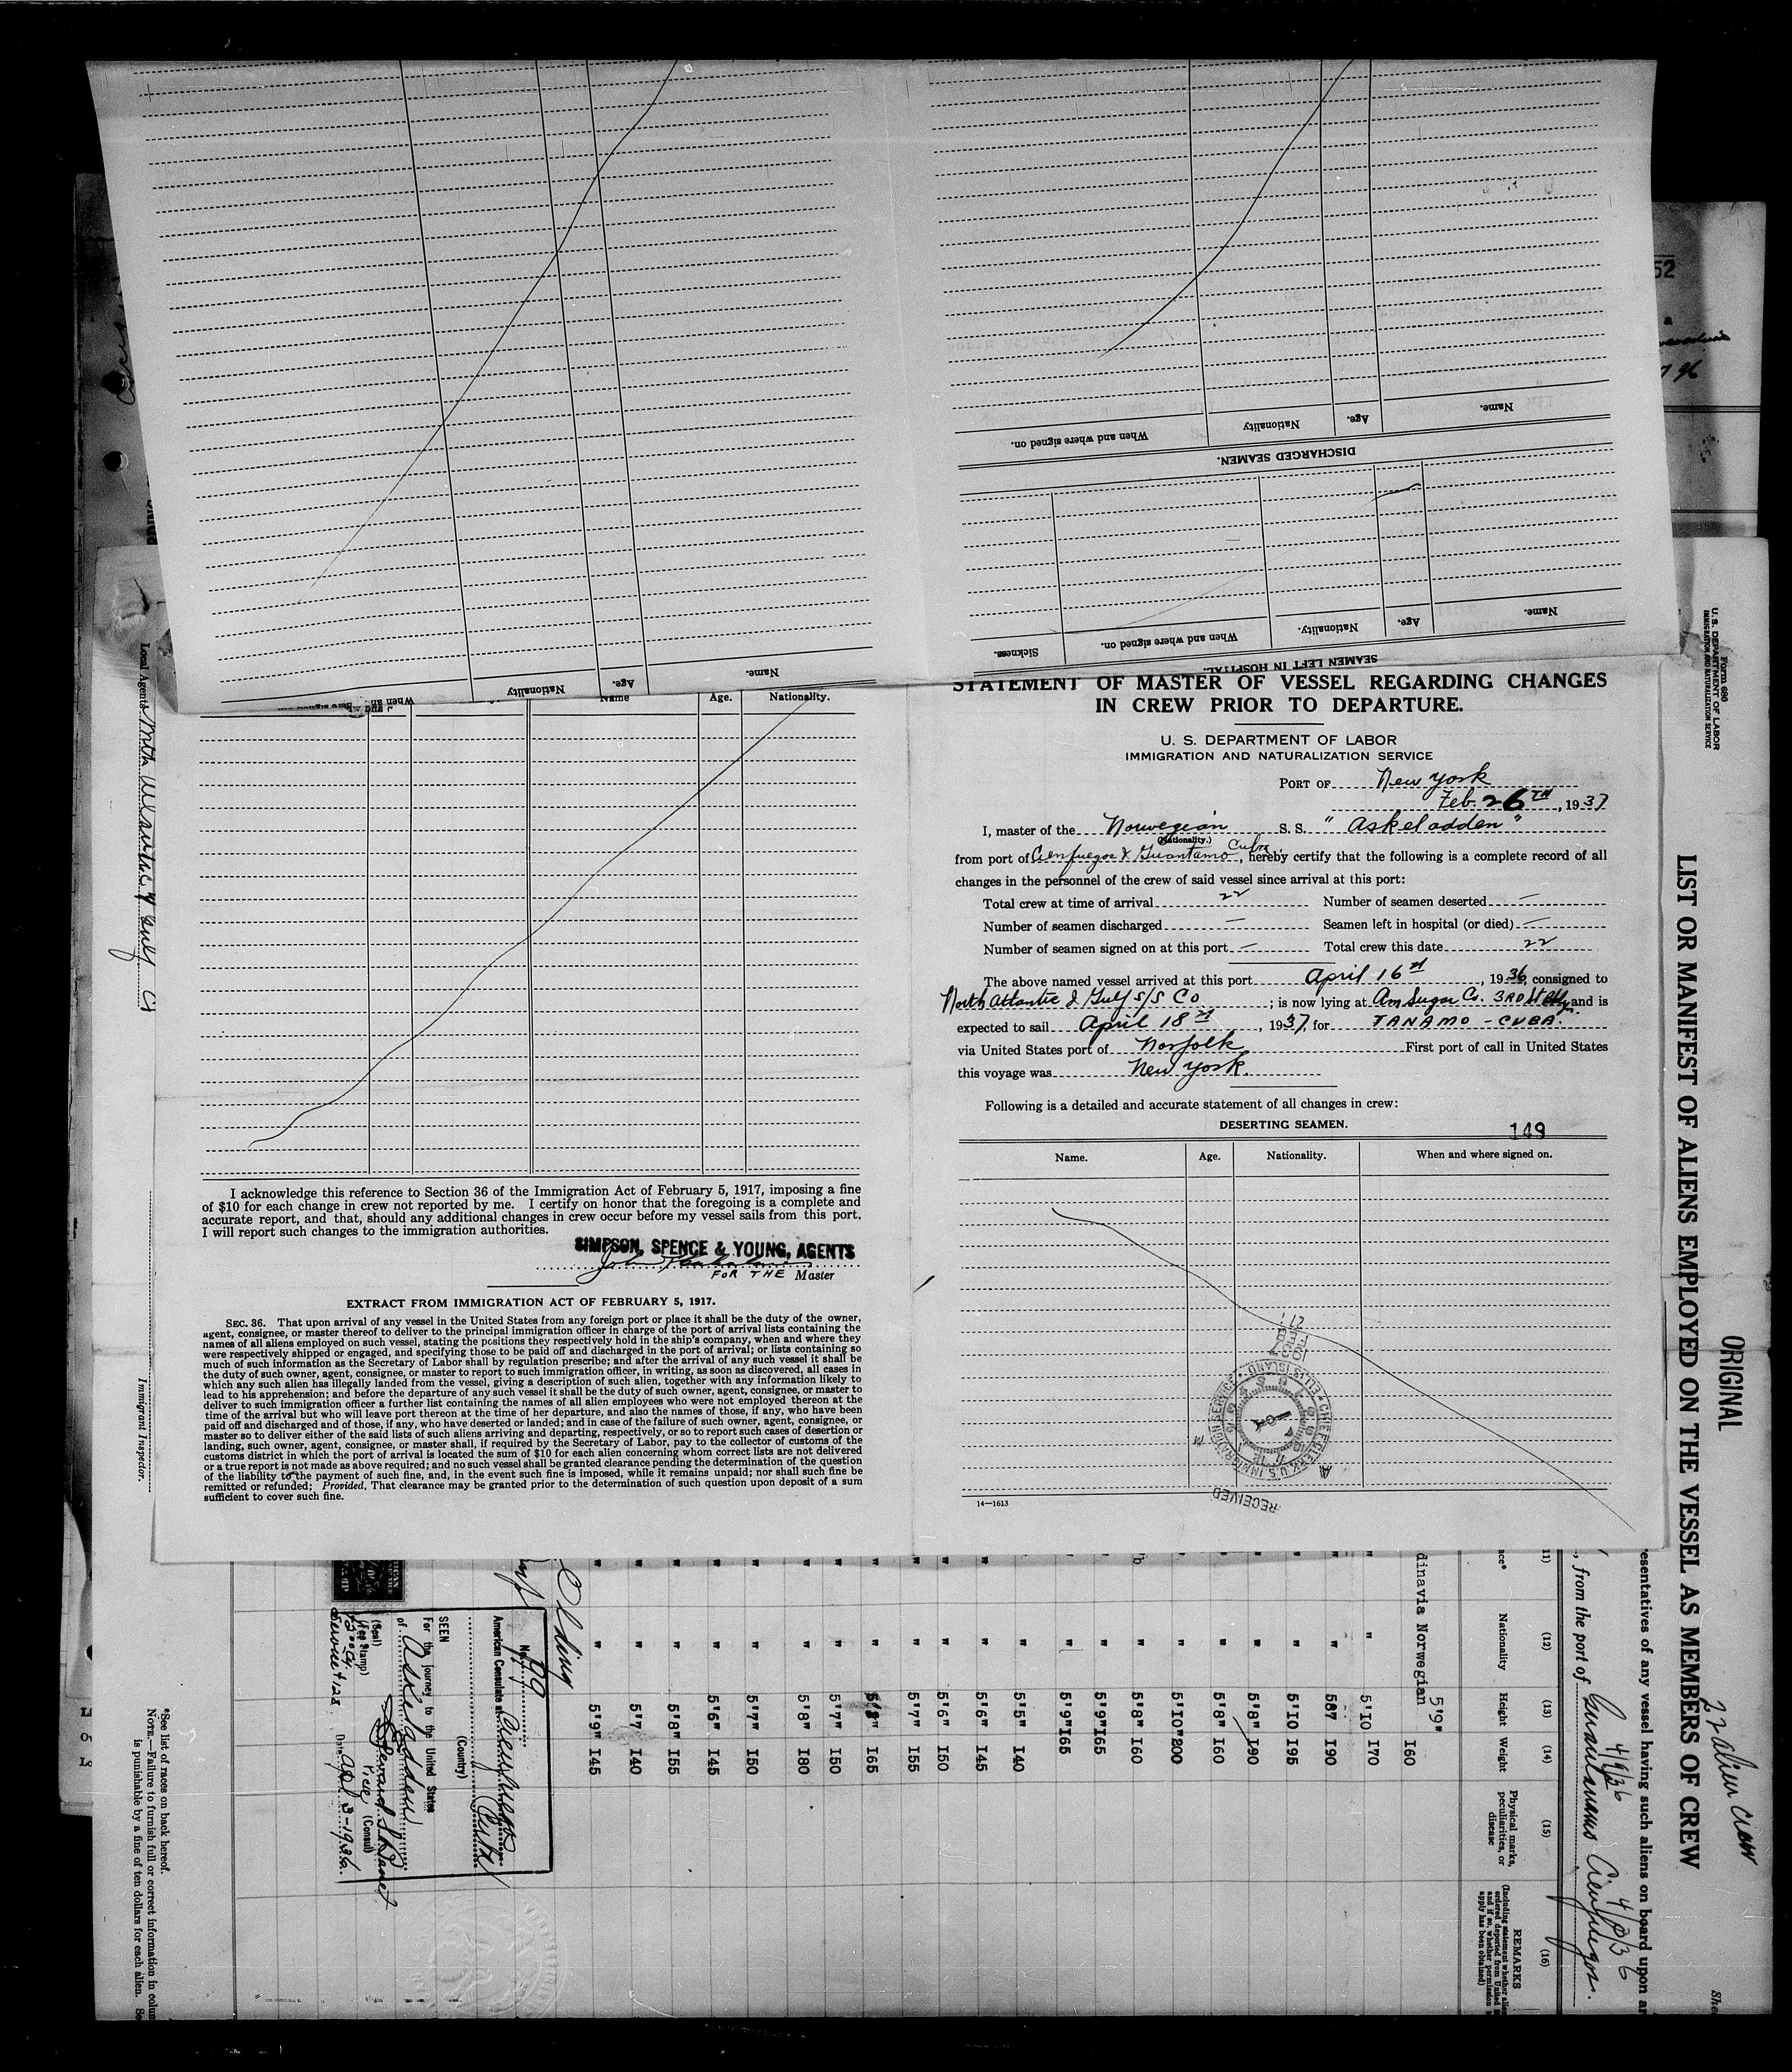 Name.
Age.
Nationality
When and where signed on.
DISCHARGED SEAMEN.
Name.
Age.
Nationality.
When and where signed on.
Sickness.
SEAMEN LEFT IN HOSPITAL.
Name.
Age.
Nationality
When an
Name
Age.
Nationality.
I acknowledge this reference to Section 36 of the Immigration Act of February 5, 1917, imposing a fine
of $10 for each change in crew not reported by me. I certify on honor that the foregoing is a complete and
accurate report, and that, should any additional changes in crew occur before my vessel sails from this port,
I will report such changes to the immigration authorities.
SIMPSON, SPENCE & YOUNG, AGENTS
John
FOR THE Master
EXTRACT FROM IMMIGRATION ACT OF FEBRUARY 5, 1917.
SEC. 36. That upon arrival of any vessel in the United States from any foreign port or place it shall be the duty of the owner,
agent, consignee, or master thereof to deliver to the principal immigration officer in charge of the port of arrival lists containing the
names of all aliens employed on such vessel, stating the positions they respectively hold in the ship's company, when and where they
were respectively shipped or engaged, and specifying those to be paid off and discharged in the port of arrival; or lists containing so
much of such information as the Secretary of Labor shall by regulation prescribe; and after the arrival of any such vessel it shall be
the duty of such owner, agent, consignee, or master to report to such immigration officer, in writing, as soon as discovered, all cases in
which any such alien has illegally landed from the vessel, giving a description of such alien, together with any information likely to
lead to his apprehension; and before the departure of any such vessel it shall be the duty of such owner, agent, consignee, or master to
deliver to such immigration officer a further list containing the names of all alien employees who were not employed thereon at the
time of the arrival but who will leave port thereon at the time of her departure, and also the names of those, if any, who have been
paid off and discharged and of those, if any, who have deserted or landed; and in case of the failure of such owner, agent, consignee, or
master so to deliver either of the said lists of such aliens arriving and departing, respectively, or so to report such cases of desertion or
landing, such owner, agent, consignee, or master shall, if required by the Secretary of Labor, pay to the collector of customs of the
customs district in which the port of arrival is located the sum of $10 for each alien concerning whom correct lists are not delivered
or a true report is not made as above required; and no such vessel shall be granted clearance pending the determination of the question
of the liability to the payment of such fine, and, in the event such fine is imposed, while it remains unpaid; nor shall such fine be
remitted or refunded; Provided, That clearance may be granted prior to the determination of such question upon deposit of a sum
sufficient to cover such fine.
STATEMENT OF MASTER OF VESSEL REGARDING CHANGES
IN CREW PRIOR TO DEPARTURE.
U. S. DEPARTMENT OF LABOR
IMMIGRATION AND NATURALIZATION SERVICE
PORT OF New York
Feb. 26TH, 1937
I, master of the Norwegian S. S. "Askeladden"
(Nationality.)
from port of Cienfuegos & Guantamo Cuba, hereby certify that the following is a complete record of all
changes in the personnel of the crew of said vessel since arrival at this port:
Total crew at time of arrival 22 Number of seamen deserted —
Number of seamen discharged — Seamen left in hospital (or died) —
Number of seamen signed on at this port — Total crew this date 22
The above named vessel arrived at this port April 16th, 1936, consigned to
North Atlantic & Gulf S/S Co ; is now lying at Am Sugar Co. 3RD St Bkly. and is
expected to sail April 18th, 1937, for TANAMO - CUBA.
via United States port of Norfolk First port of call in United States
this voyage was New York.
Following is a detailed and accurate statement of all changes in crew:
DESERTING SEAMEN.
149
Name. Age. Nationality. When and where signed on.
RECEIVED
CHIEF CLERK, U.S. IMMIGRATION SERVICE
ELLIS ISLAND
1937
FEB
27
14—1613
52
Form 680
U. S. DEPARTMENT OF LABOR
IMMIGRATION AND NATURALIZATION SERVICE
ORIGINAL
22 alien crew
LIST OR MANIFEST OF ALIENS EMPLOYED ON THE VESSEL AS MEMBERS OF CREW
esentatives of any vessel having such aliens on board upon ar
4/9/36 4/3/36
, from the port of Guantanamo Cienfuegos.
(12) (13) (14) (15) (16)
Nationality Height Weight Physical marks, peculiarities, or disease REMARKS
dinavia Norwegian 5'9" 160
" " 5'10 170
" " 5'7 190
" " 5'10 195
" " 5'8" 190
" " 5'8" 160
" " 5'10" 200
" 5'8" 160
" " 5'9" 165
" " 5'9" 165
" " 5'5" 140
" " 5'6" 145
" " 5'6" 150
" " 5'7" 155
" " 5'8" 165
" " 5'7" 150
" " 5'8" 180
" " 5'7" 150
" " 5'6" 145
" " 5'8" 155
" " 5'7 140
" " 5'9" 145
No. 99
American Consulate at Cienfuegos Cuba
(Country)
SEEN
For the journey to the United States
of Askeladden
(Consul)
(Seal)
(Fee Stamp)
Date Apl 3-1936.
Service 4128
Local Agents North Atlantic & Gulf
Immigrant Inspector.
*See list of races on back hereof.
NOTE.—Failure to furnish full or correct information in colum
is punishable by a fine of ten dollars for each alien.